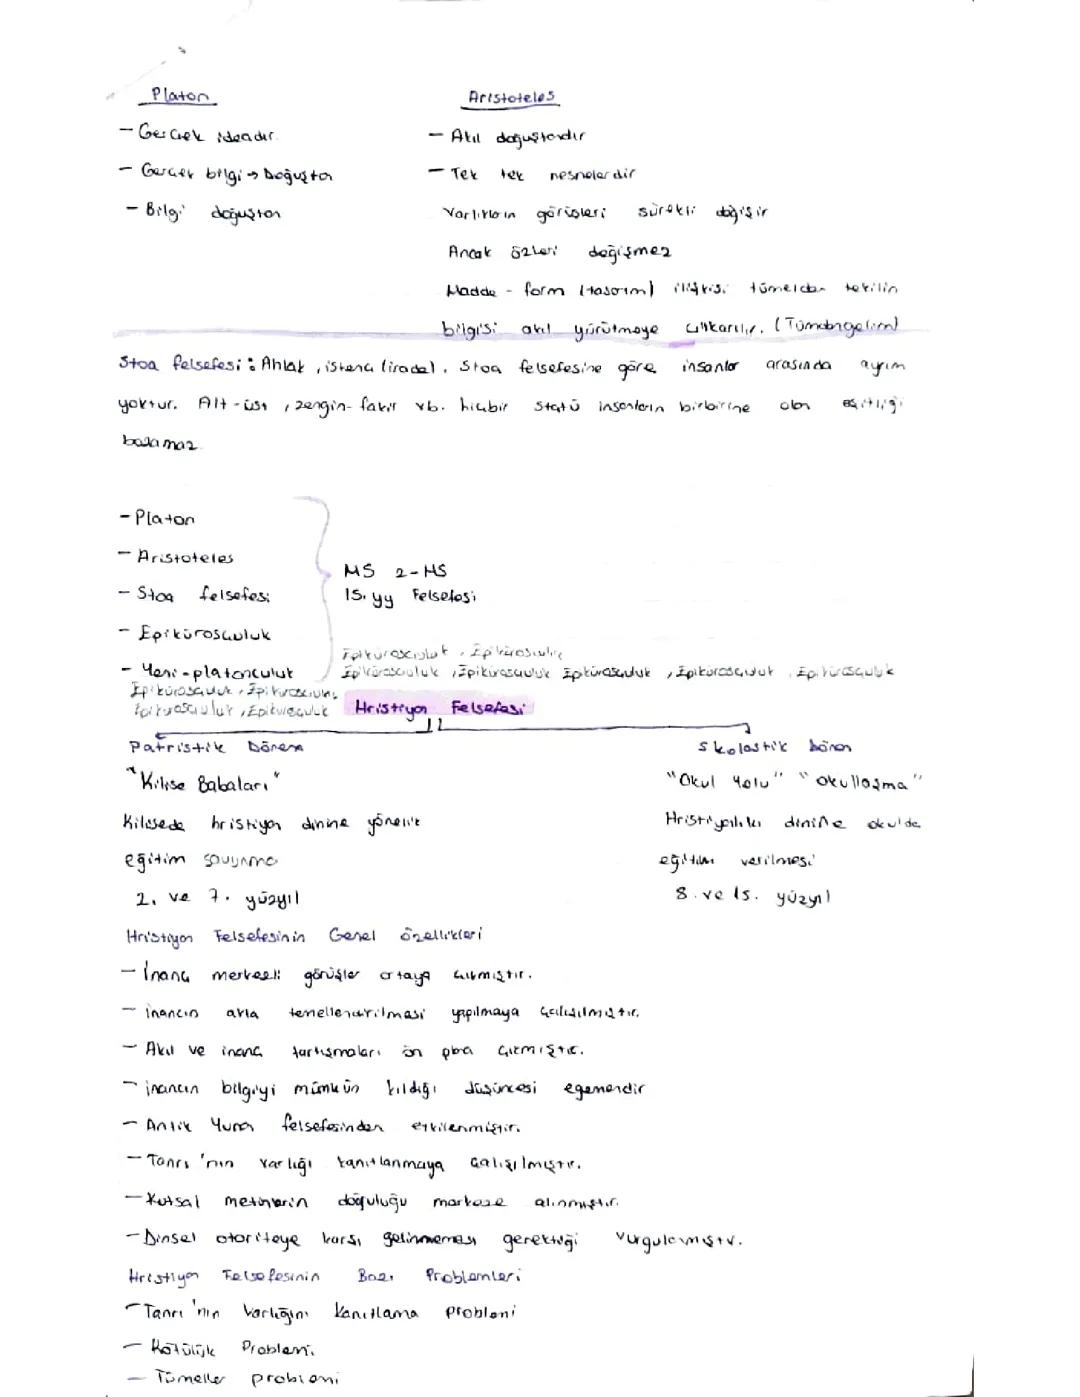 Platon
Aristoteles
- Gerçek ideadır.
- Akıl doğuştandır
- Gerçek bilgi → Doğuştan
- Tek tek nesnelerdir
- Bilgi doğuştan
Varlıkların görüşleri sürekli değişir
Ancak özleri değişmez
Madde - form (tasarım) ilişkisi tümelden tekilin
bilgisi akıl yürütmeye çıkarılır. (Tümdengelim)
Stoa felsefesi: Ahlak, istenç (irade). Stoa felsefesine göre insanlar arasında ayrım
yoktur. Alt-üst, zengin-fakir vb. hiçbir statü insanların birbirine olan eşitliği
bozamaz.
- Platon
- Aristoteles
MS 2-MS
- Stoa felsefesi
15. yy Felsefesi
- Epikürosçuluk
Epikürosçuluk, Epikürosçuluk
- Yeni-platonculuk
Epikürosçuluk, Epikürosçuluk Epikürosçuluk, Epikürosçuluk, Epikürosçuluk
Epikürosçuluk, Epikürosçuluk
Epikürosçuluk, Epikürosçuluk
Hristiyan Felsefesi
Patristik Dönem
Skolastik Dönem
"Kilise Babaları"
"Okul Yolu" "Okullaşma"
Kilisede hristiyan dinine yönelik
Hristiyanlık dinine okulda
eğitim savunma
eğitim verilmesi
2. ve 7. yüzyıl
8. ve 15. yüzyıl
Hristiyan Felsefesinin Genel özellikleri
- İnanç merkezli görüşler ortaya çıkmıştır.
- inancın akla temellendirilmesi yapılmaya çalışılmıştır.
- Akıl ve inanç tartışmaları ön plana çıkmıştır.
- inancın bilgiyi mümkün kıldığı düşüncesi egemendir
- Antik Yunan felsefesinden etkilenmiştir.
- Tanrı'nın varlığı kanıtlanmaya çalışılmıştır.
- Kutsal metinlerin doğruluğu merkeze alınmıştır.
- Dinsel otoriteye karşı gelinmemesi gerektiği vurgulanmıştır.
Hristiyan Felsefesinin Bazı Problemleri
- Tanrı'nın Varlığını Kanıtlama problemi
- Kötülük Problemi
- Tümeller problemi